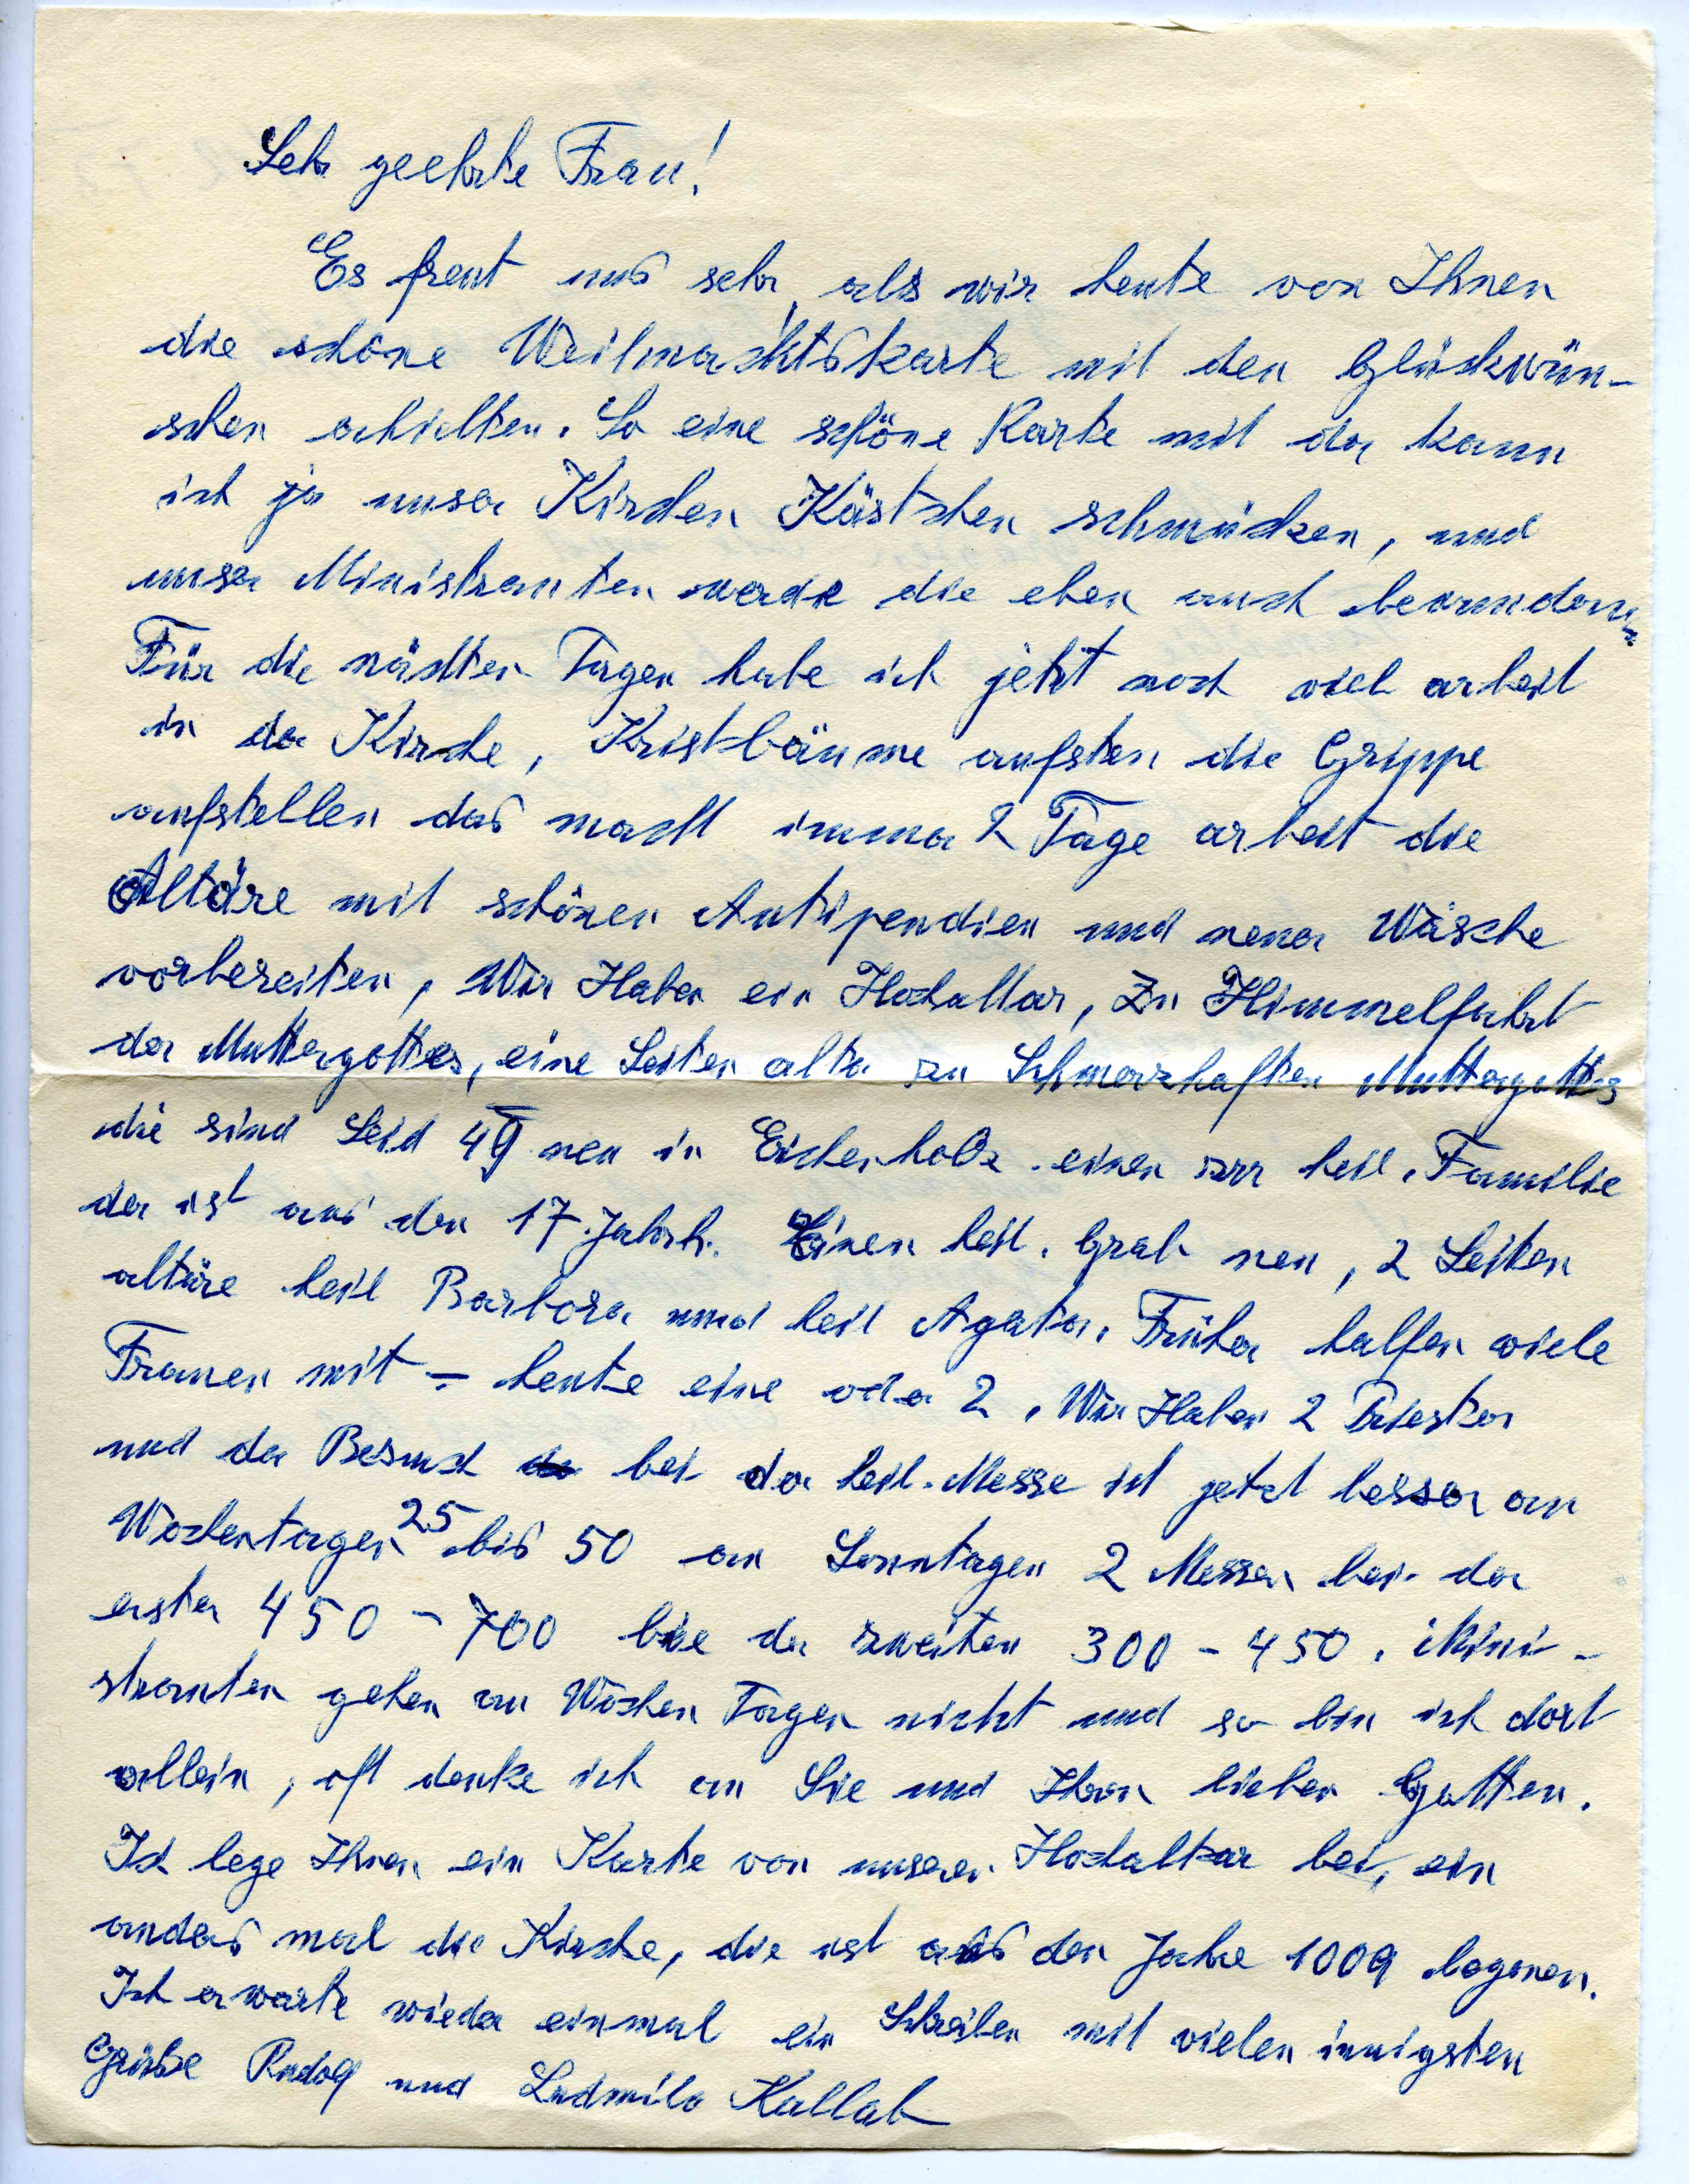 Sehr geehrte Frau!
Es freut uns sehr, als wir heute von Ihnen
die schöne Weilnachtskarte mit den Glückwün-
schen erhielten. So eine schöne Karte mit der kann
ich ja unser Kirchen Kästchen schmücken, und
unser Ministranten werde die eben auch bewundern.
Für die nächten Tagen habe ich jetzt noch viel arbeit
in der Kirche, Kristbäume aufsten die Grippe
aufstellen das macht immer 2 Tage arbeit die
Altäre mit schönen Antipendien und neuer Wäsche
vorbereiten, Wir Haben ein Hochaltar, Zu Himmelfahrt
der Muttergottes, eine Seiten alter zu Schmerzhaften Muttergottes
die sind Seid 49 neu in Eichenholz einen zur heil. Familie
der ist aus den 17. Jahrh. Einen heil. Grab neu, 2 Seiten
altäre heil Barbora und heil Agata. Früher halfen viele
Frauen mit - heute eine oder 2. Wir Haben 2 Priester
und der Besuch bei der heil. Messe ist jetzt besser an
Wochentagen 25 bis 50 an Sonntagen 2 Messen bei der
erster 450 - 700 bie der zweiten 300 - 450. Mini-
stranten gehen an Wochen Tagen nicht und so bin ich dort
allein, oft denke ich an Sie und Ihren lieben Gatten.
Ich lege Ihnen ein Karte von unseren Hochaltar bei, ein
anders mal die Kirche, die ist aus den Jahre 1009 begonen.
Ich erwarte wieder einmal ein Schreiben mit vielen innigsten
Grüße Rudolf und Ludmila Kallab